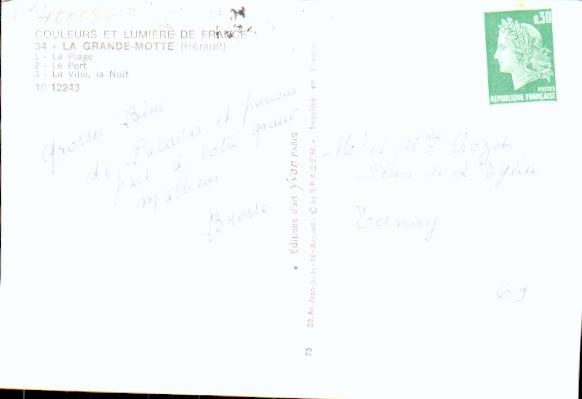 COULEURS ET LUMIÈRE DE FRANCE
34 - LA GRANDE-MOTTE (Hérault)
1 - La Plage
2 - Le Port
3 - La Ville, la Nuit
10 12243
Grosses Bises
de Palavas et prenons
part à votre grand
malheur
Brosse
● Éditions d'art yvon PARIS
Imprimé en France
73
0,30
POSTES
RÉPUBLIQUE FRANÇAISE
Mr et Mme
Place de L'Eglise
Ternay
69